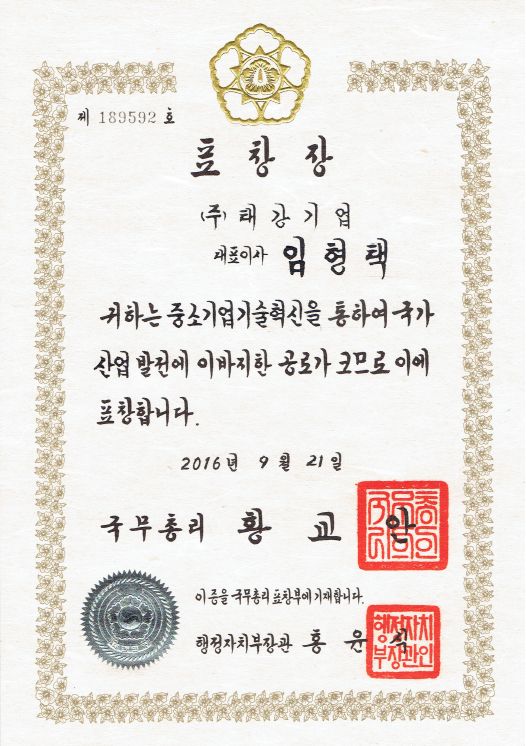 제 189592 호
표 창 장
(주) 태 강 기 업
대표이사 임 형 택
귀하는 중소기업기술혁신을 통하여 국가
산업 발전에 이바지한 공로가 크므로 이에
표창합니다.
2016년 9월 21일
국무총리 황 교 안
이 증을 국무총리 표창부에 기재합니다.
행정자치부장관 홍 윤 식
행정자치
부장관인